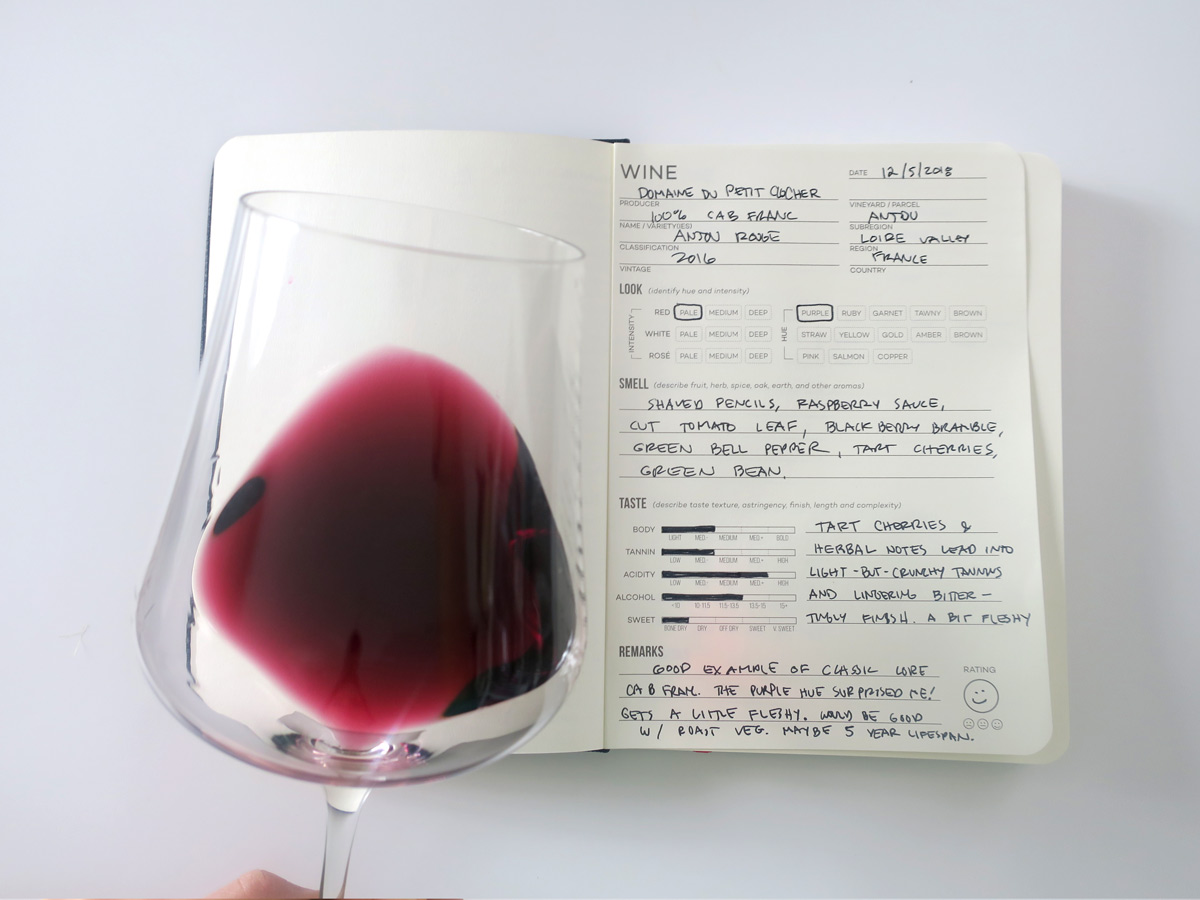 WINE
DATE 12/5/2018
DOMAINE DU PETIT CLOCHER
PRODUCER
VINEYARD / PARCEL
100% CAB FRANC
ANJOU
NAME / VARIETY(IES)
SUBREGION
ANJOU ROUGE
LOIRE VALLEY
CLASSIFICATION
REGION
2016
FRANCE
VINTAGE
COUNTRY
LOOK (identify hue and intensity)
INTENSITY
HUE
RED PALE MEDIUM DEEP PURPLE RUBY GARNET TAWNY BROWN
WHITE PALE MEDIUM DEEP STRAW YELLOW GOLD AMBER BROWN
ROSÉ PALE MEDIUM DEEP PINK SALMON COPPER
SMELL (describe fruit, herb, spice, oak, earth, and other aromas)
SHAVED PENCILS, RASPBERRY SAUCE,
CUT TOMATO LEAF, BLACKBERRY BRAMBLE,
GREEN BELL PEPPER, TART CHERRIES,
GREEN BEAN.
TASTE (describe taste texture, astringency, finish, length and complexity)
BODY
LIGHT MED- MEDIUM MED+ BOLD
TANNIN
LOW MED- MEDIUM MED+ HIGH
ACIDITY
LOW MED- MEDIUM MED+ HIGH
ALCOHOL
<10 10-11.5 11.5-13.5 13.5-15 15+
SWEET
BONE DRY DRY OFF DRY SWEET V. SWEET
TART CHERRIES &
HERBAL NOTES LEAD INTO
LIGHT-BUT-CRUNCHY TANNINS
AND LINGERING BITTER-
TINGLY FINISH. A BIT FLESHY
REMARKS
RATING
GOOD EXAMPLE OF CLASSIC LOIRE
CAB FRANC. THE PURPLE HUE SURPRISED ME!
GETS A LITTLE FLESHY. WOULD BE GOOD
W/ ROAST VEG. MAYBE 5 YEAR LIFESPAN.